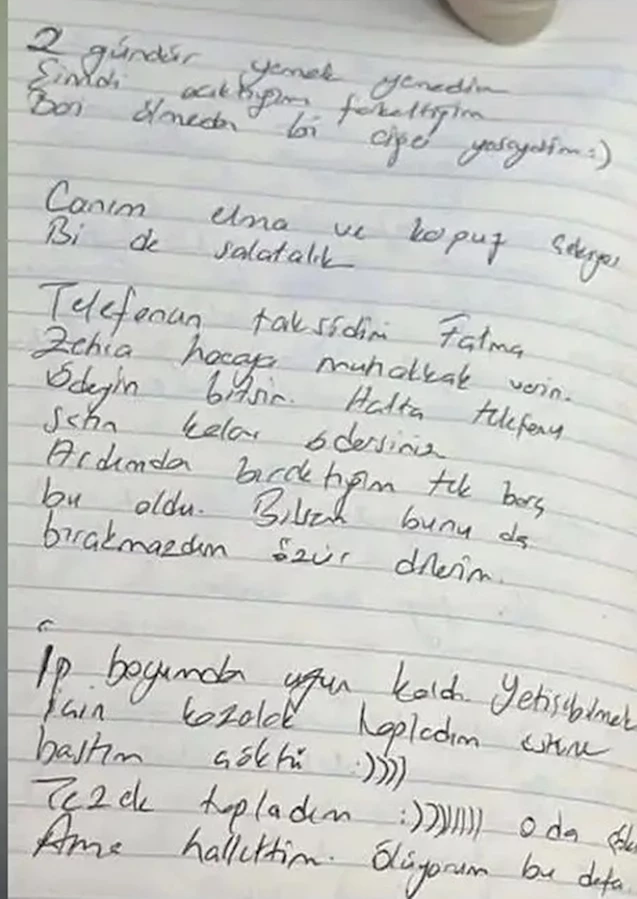 2 gündür yemek yemedim
Şimdi acıktığım farkettiğim
Ben ölmeden bi çiğe yaseydim :)
Canım elma ve kapuz
Bi de salatalık
Telefonun taksidini Fatma
Zehra hocaya muhakkak verin.
Ödeyin bitsin. Hatta telefonu
satın kalar ödersiniz
Ardımda bıraktığım tek borç
bu oldu. Bilsem bunu da
bırakmazdım özür dilerim.
İp boyumdan uzun kaldı. Yetişebilmek
için kozalak topladım üstüne
bastım çöktü :))))
Tezek topladım :))))))))) o da
Ama hallettim. Ölüyorum bu defa.